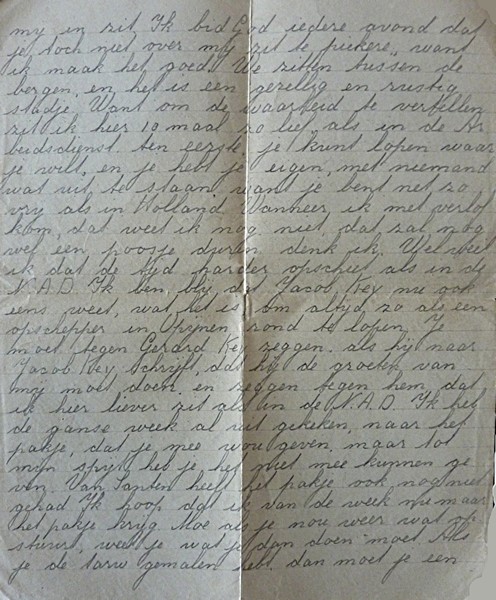 my in zit. Ik bid God iedere avond dat
je toch niet over my zit te piekere, want
ik maak het goed. We zitten tussen de
bergen, en het is een gezellig en rustig
stadje. Want om de waarheid te vertellen
zit ik hier 10 maal zo lief, als in de Ar
beidsdienst. ten eerste, je kunt lopen waar
je wilt, en je hebt je eigen, met niemand
wat uit te staan, want je bent net zo
vry als in Holland. Wanneer ik met verlof
kom, dat weet ik nog niet, dat zal nog
wel een poosje duren denk ik. Wel weet
ik dat de tyd harder opschiet als in de
N.A.D. Ik ben bly dat Jacob Key nu ook
eens weet, wat het is om altyd zo als een
opschepper in Rynen rond te lopen. Je
moet tegen Gerard Key zeggen. als hij naar
Jacob Key schrijft, dat hij de groeten van
my moet doen. en zeggen tegen hem, dat
ik hier liever zit als in de N.A.D. Ik heb
de ganse week al uit gekeken, naar het
pakje, dat je mee wou geven, maar tot
myn spyt heb je het niet mee kunnen ge
ven. Van Santen heeft het pakje ook nog niet
gehad. Ik hoop dat ik van de week nu maar
het pakje kryg. Moe als je nou weer wat op
stuurt, weet je wat je dan doen moet. Als
je de tarw gemalen hebt. dan moet je een